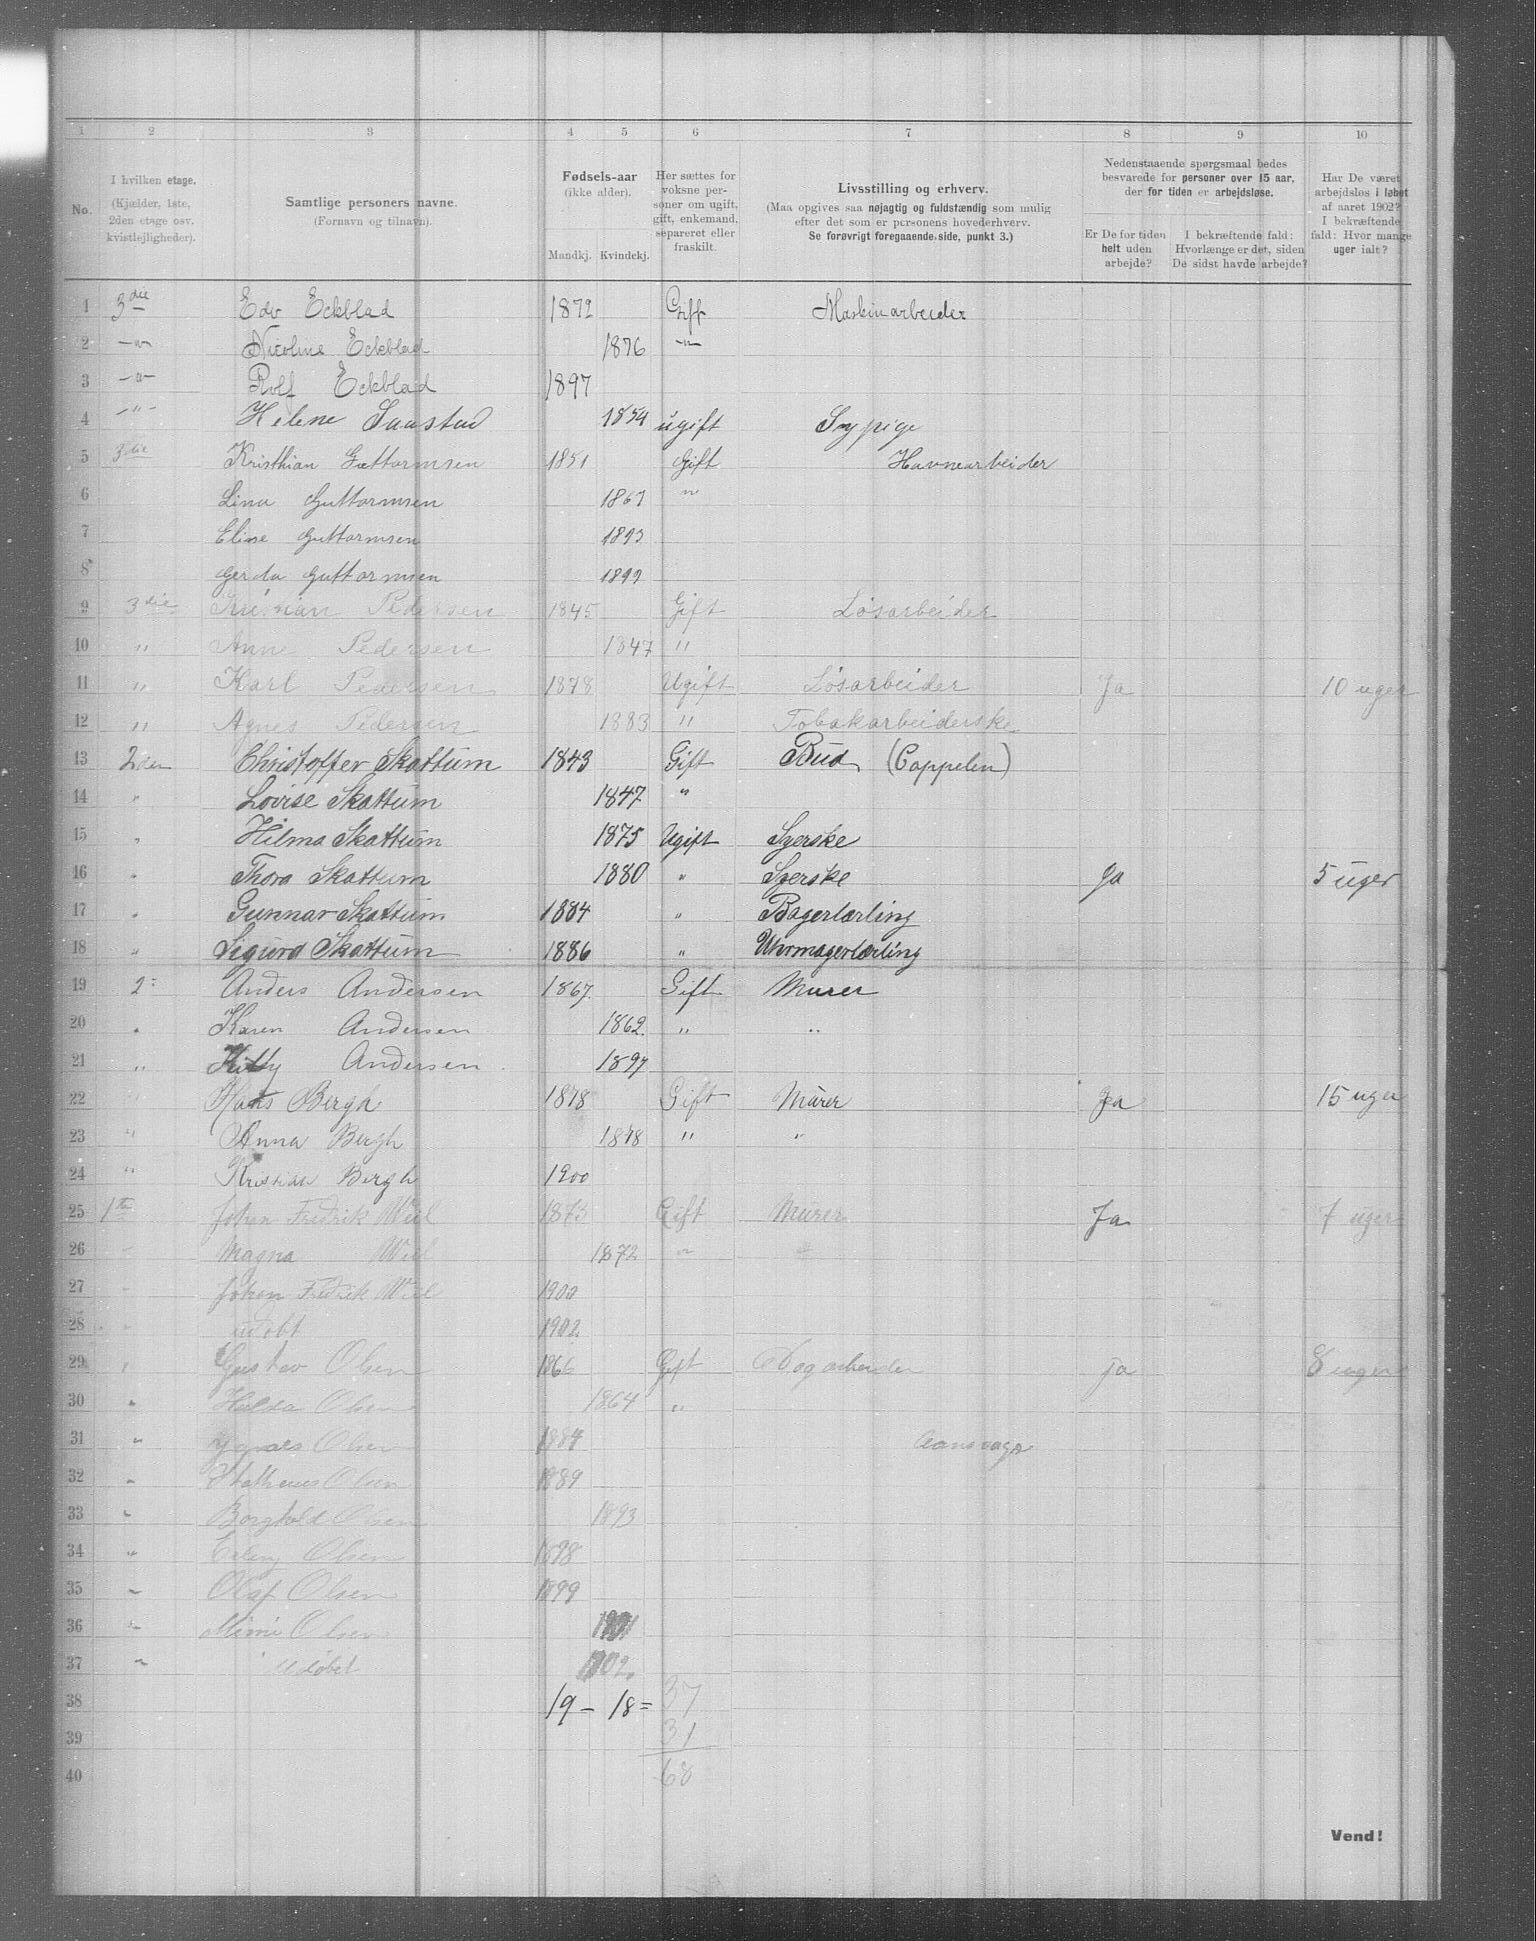 1 2 3 4 5 6 7 8 9 10
No.
I hvilken etage.
(Kjælder, 1ste,
2den etage osv.
kvistlejligheder).
Samtlige personers navne.
(Fornavn og tilnavn).
Fødsels-aar
(ikke alder).
Mandkj. Kvindekj.
Her sættes for
voksne per-
soner om ugift,
gift, enkemand,
separeret eller
fraskilt.
Livsstilling og erhverv.
(Maa opgives saa nøjagtig og fuldstændig som mulig
efter det som er personens hovederhverv.
Se forøvrigt foregaaende side, punkt 3.)
Nedenstaaende spørgsmaal bedes
besvarede for personer over 15 aar,
der for tiden er arbejdsløse.
Er De for tiden
helt uden
arbejde?
I bekræftende fald:
Hvorlænge er det, siden
De sidst havde arbejde?
Har De været
arbejdsløs i løbet
af aaret 1902?
I bekræftende
fald: Hvor mange
uger ialt?
1 3die Edv Eckblad 1872 Gift Maskinarbeider
2 -"- Nicoline Eckblad 1876 -"-
3 -"- Rolf Eckblad 1897
4 -"- Helene Saastad 1854 ugift Sypige
5 3die Kristhian Guttormsen 1851 Gift Havnearbeider
6 Lina Guttormsen 1867 "
7 Eline Guttormsen 1893
8 Gerda Guttormsen 1899
9 3die Kristian Pedersen 1845 Gift Løsarbeider
10 " Anne Pedersen 1847 "
11 " Karl Pedersen 1878 Ugift Løsarbeider Ja 10 uger
12 " Agnes Pedersen 1883 " Tobakarbeiderske
13 2den Christoffer Skattum 1843 Gift Bud (Cappelen)
14 " Lovise Skattum 1847 "
15 " Hilma Skattum 1875 Ugift Syerske
16 " Thora Skattum 1880 " Syerske Ja 5 uger
17 " Gunnar Skattum 1884 " Bagerlærling
18 " Sigurd Skattum 1886 " Uhrmagerlærling
19 2: Anders Andersen 1867. Gift Murer
20 " Karen Andersen 1862. " "
21 " Kitty Andersen 1897
22 " Hans Bergh 1878 Gift Murer Ja 15 uger
23 " Anna Bergh 1878 " "
24 " Kristian Bergh 1900
25 1ste Johan Fredrik Wiel 1873 Gift Murer Ja 7 uger
26 " Magna Wiel 1872 " "
27 " Johan Fredrik Wiel 1900
28 " udøbt 1902
29 " Gustav Olsen 1866 Gift arbeider Ja 8 uger
30 " Hilda Olsen 1864 "
31 " Olsen 1887
32 " Olsen 1889
33 " Borghild Olsen 1893
34 " Erling Olsen 1898
35 " Olaf Olsen 1899
36 " Mimi Olsen 1901
37 " Udøbt 1902
38 19 - 18 = 37
39 31
40 68
Vend!